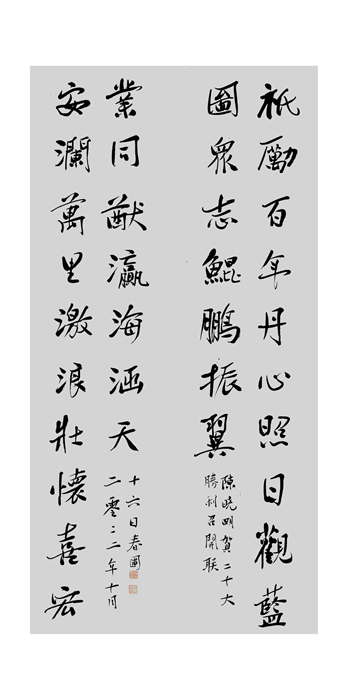 祇勵百年丹心照日觀藍
圖眾志鯤鵬振翼
陳曉明賀二十大
勝利召開联
安瀾萬里激浪壯懷喜宏
業同猷瀛海涵天
二零二二年十月
十六日春圃